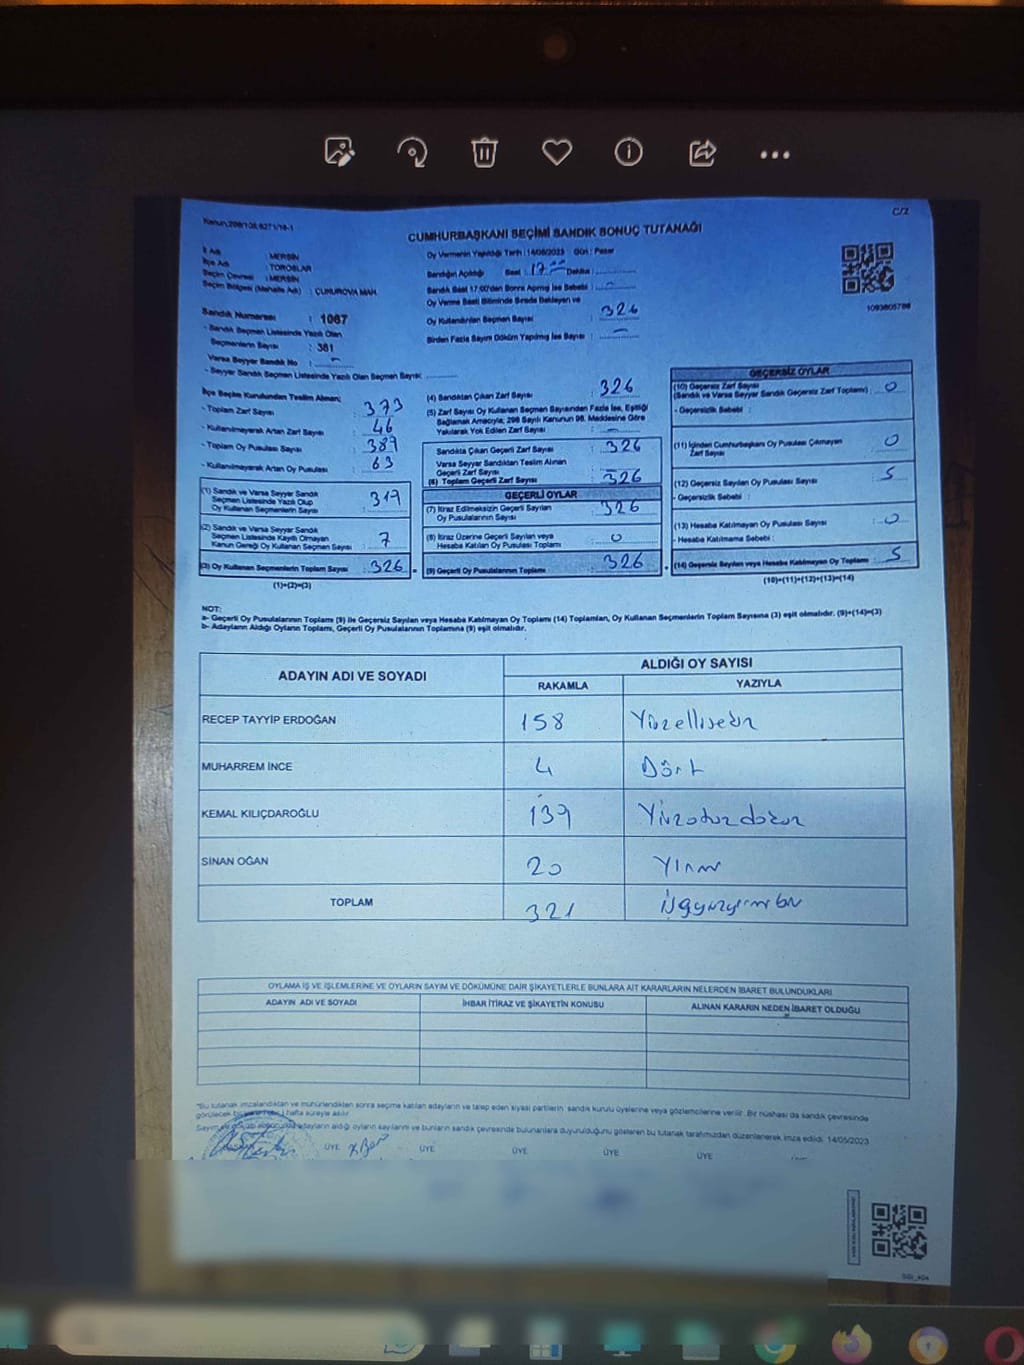 Kanun:298/105,6271/19-1
C/2
CUMHURBAŞKANI SEÇİMİ SANDIK SONUÇ TUTANAĞI
İl Adı : MERSİN
İlçe Adı : TOROSLAR
Seçim Çevresi : MERSİN
Seçim Bölgesi (Mahalle Adı) : ÇUKUROVA MAH.
Sandık Numarası : 1067
- Sandık Seçmen Listesinde Yazılı Olan
Seçmenlerin Sayısı : 381
Varsa Seyyar Sandık No :
- Seyyar Sandık Seçmen Listesinde Yazılı Olan Seçmen Sayısı:
Oy Vermenin Yapıldığı Tarih : 14/05/2023 Gün : Pazar
Sandığın Açıldığı Saat : 17 00 Dakika :
Sandık Saat 17:00'den Sonra Açılmış İse Sebebi : -
Oy Verme Saati Bitiminde Sırada Bekleyen ve
Oy Kullandırılan Seçmen Sayısı : 326
Birden Fazla Sayım Döküm Yapılmış İse Sayısı : -
1093805788
İlçe Seçim Kurulundan Teslim Alınan;
- Toplam Zarf Sayısı : 373
- Kullanılmayarak Artan Zarf Sayısı : 46
- Toplam Oy Pusulası Sayısı : 389
- Kullanılmayarak Artan Oy Pusulası : 63
(1) Sandık ve Varsa Seyyar Sandık
Seçmen Listesinde Yazılı Olup
Oy Kullanan Seçmenlerin Sayısı : 319
(2) Sandık ve Varsa Seyyar Sandık
Seçmen Listesinde Kayıtlı Olmayan
Kanun Gereği Oy Kullanan Seçmen Sayısı : 7
(3) Oy Kullanan Seçmenlerin Toplam Sayısı : 326
(1)+(2)=(3)
(4) Sandıktan Çıkan Zarf Sayısı : 326
(5) Zarf Sayısı Oy Kullanan Seçmen Sayısından Fazla İse, Eşitliği
Sağlamak Amacıyla; 298 Sayılı Kanunun 98. Maddesine Göre
Yakılarak Yok Edilen Zarf Sayısı : -
Sandıkta Çıkan Geçerli Zarf Sayısı : 326
Varsa Seyyar Sandıktan Teslim Alınan
Geçerli Zarf Sayısı :
(6) Toplam Geçerli Zarf Sayısı : 326
GEÇERLİ OYLAR
(7) İtiraz Edilmeksizin Geçerli Sayılan
Oy Pusulalarının Sayısı : 326
(8) İtiraz Üzerine Geçerli Sayılan veya
Hesaba Katılan Oy Pusulası Toplamı : 0
(9) Geçerli Oy Pusulalarının Toplamı : 326
GEÇERSİZ OYLAR
(10) Geçersiz Zarf Sayısı
(Sandık ve Varsa Seyyar Sandık Geçersiz Zarf Toplamı) : 0
- Geçersizlik Sebebi :
(11) İçinden Cumhurbaşkanı Oy Pusulası Çıkmayan
Zarf Sayısı : 0
(12) Geçersiz Sayılan Oy Pusulası Sayısı : 5
- Geçersizlik Sebebi :
(13) Hesaba Katılmayan Oy Pusulası Sayısı : 0
- Hesaba Katılmama Sebebi :
(14) Geçersiz Sayılan veya Hesaba Katılmayan Oy Toplamı : 5
(10)+(11)+(12)+(13)=(14)
NOT:
a- Geçerli Oy Pusulalarının Toplamı (9) ile Geçersiz Sayılan veya Hesaba Katılmayan Oy Toplamı (14) Toplamları, Oy Kullanan Seçmenlerin Toplam Sayısına (3) eşit olmalıdır. (9)+(14)=(3)
b- Adayların Aldığı Oyların Toplamı, Geçerli Oy Pusulalarının Toplamına (9) eşit olmalıdır.
ADAYIN ADI VE SOYADI
ALDIĞI OY SAYISI
RAKAMLA YAZIYLA
RECEP TAYYİP ERDOĞAN 158 Yüzellisekiz
MUHARREM İNCE 4 Dört
KEMAL KILIÇDAROĞLU 139 Yüzotuzdokuz
SİNAN OĞAN 20 Yirmi
TOPLAM 321 Üçyüzyirmibir
OYLAMA İŞ VE İŞLEMLERİNE VE OYLARIN SAYIM VE DÖKÜMÜNE DAİR ŞİKAYETLERLE BUNLARA AİT KARARLARIN NELERDEN İBARET BULUNDUKLARI
ADAYIN ADI VE SOYADI İHBAR İTİRAZ VE ŞİKAYETİN KONUSU ALINAN KARARIN NEDEN İBARET OLDUĞU
*Bu tutanak imzalandıktan ve mühürlendikten sonra seçime katılan adayların ve talep eden siyasi partilerin sandık kurulu üyelerine veya gözlemcilerine verilir. Bir nüshası da sandık çevresinde
görülecek bir yere 1 hafta süreyle asılır.
adayların aldığı oyların sayılarını ve bunların sandık çevresinde bulunanlara duyurulduğunu gösteren bu tutanak tarafımızdan düzenlenerek imza edildi. 14/05/2023
ÜYE ÜYE ÜYE ÜYE ÜYE